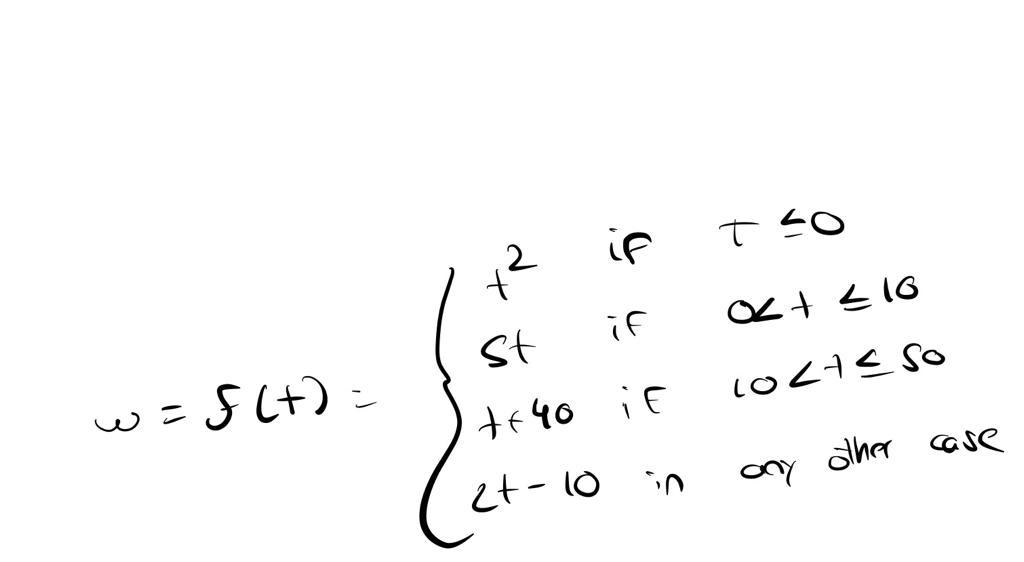 t² if t ≤ 0
5t if 0 < t ≤ 10
w = f(t) = t + 40 if 10 < t ≤ 50
2t - 10 in any other case